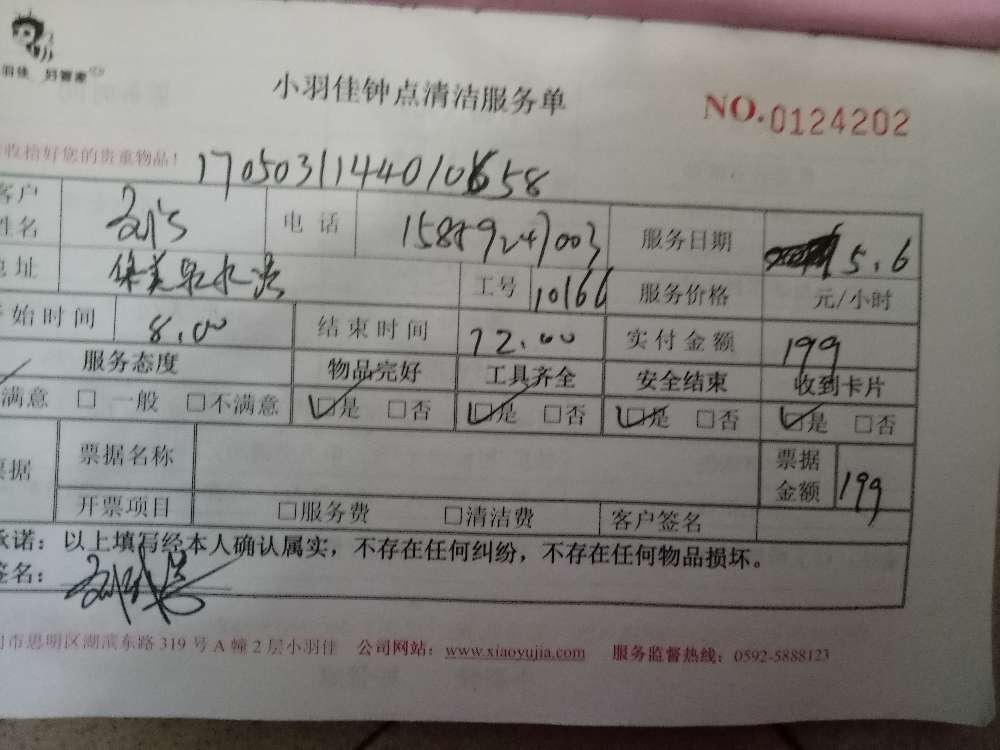 羽佳 好管家
小羽佳钟点清洁服务单 NO.0124202
收拾好您的贵重物品！
客户姓名 电话 服务日期 5.6
地址 工号 10166 服务价格 元/小时
开始时间 8.00 结束时间 12.00 实付金额 199
服务态度 物品完好 工具齐全 安全结束 收到卡片
满意 □ 一般 □不满意 □是 □否 □是 □否 □是 □否 □是 □否
票据 票据名称 票据金额 199
开票项目 □服务费 □清洁费 客户签名
承诺：以上填写经本人确认属实，不存在任何纠纷，不存在任何物品损坏。
签名：
门市思明区湖滨东路 319 号 A 幢 2 层小羽佳 公司网站：www.xiaoyujia.com 服务监督热线：0592-5888123